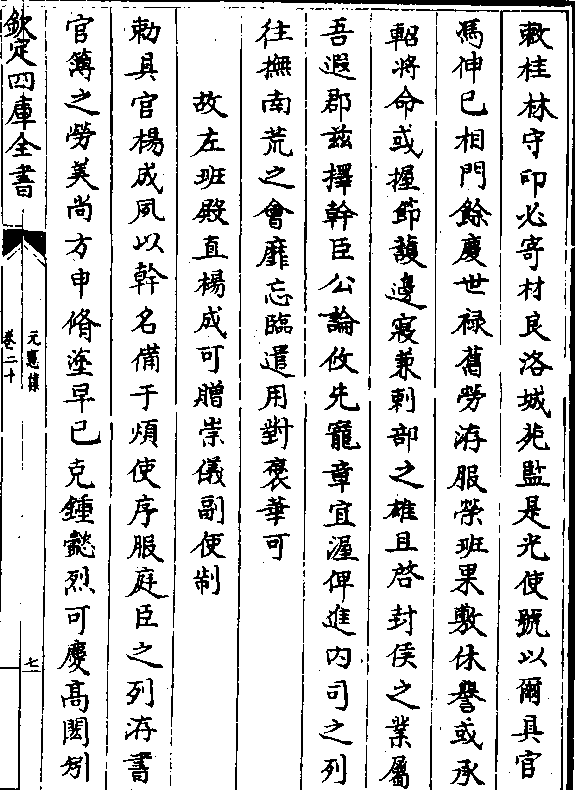 敕桂林守印必寄材良洛城苑監是光使號以爾具官
馮伸已相門餘慶世禄舊勞洊服榮班果敷休譽或承
軺將命或握節護邊寢兼刺部之雄且啓封侯之業屬
吾遐郡兹擇幹臣公論攸先寵章宜渥俾進内司之列
往撫南荒之會靡忘臨遣用對褒華可
故左班殿直楊成可贈崇儀副使制
勅具官楊成夙以幹名備于煩使序服庭臣之列洊書
官簿之勞美尚方申脩塗早已克鍾懿烈可慶高閎矧
欽定四庫全書
元憲集
卷二十
七